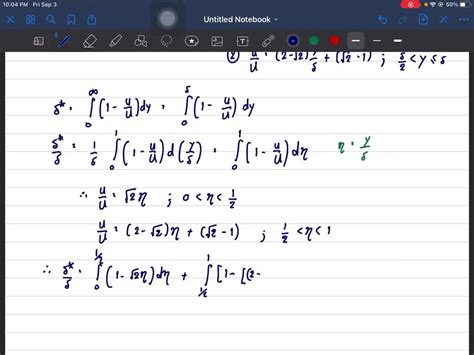 10:04 PM Fri Sep 3
60%
Untitled Notebook
② u/U = (2-√2) y/δ + (√2-1) ; δ/2 < y ≤ δ
δ* = ∫₀^∞ (1 - u/U) dy = ∫₀^δ (1 - u/U) dy
δ*/δ = 1/δ ∫₀^1 (1 - u/U) d(y/δ) = ∫₀^1 (1 - u/U) dη η = y/δ
∴ u/U = √2 η ; 0 < η < 1/2
u/U = (2-√2) η + (√2-1) ; 1/2 < η < 1
∴ δ*/δ = ∫₀^1/2 (1 - √2η) dη + ∫_1/2^1 [1 - [(2-